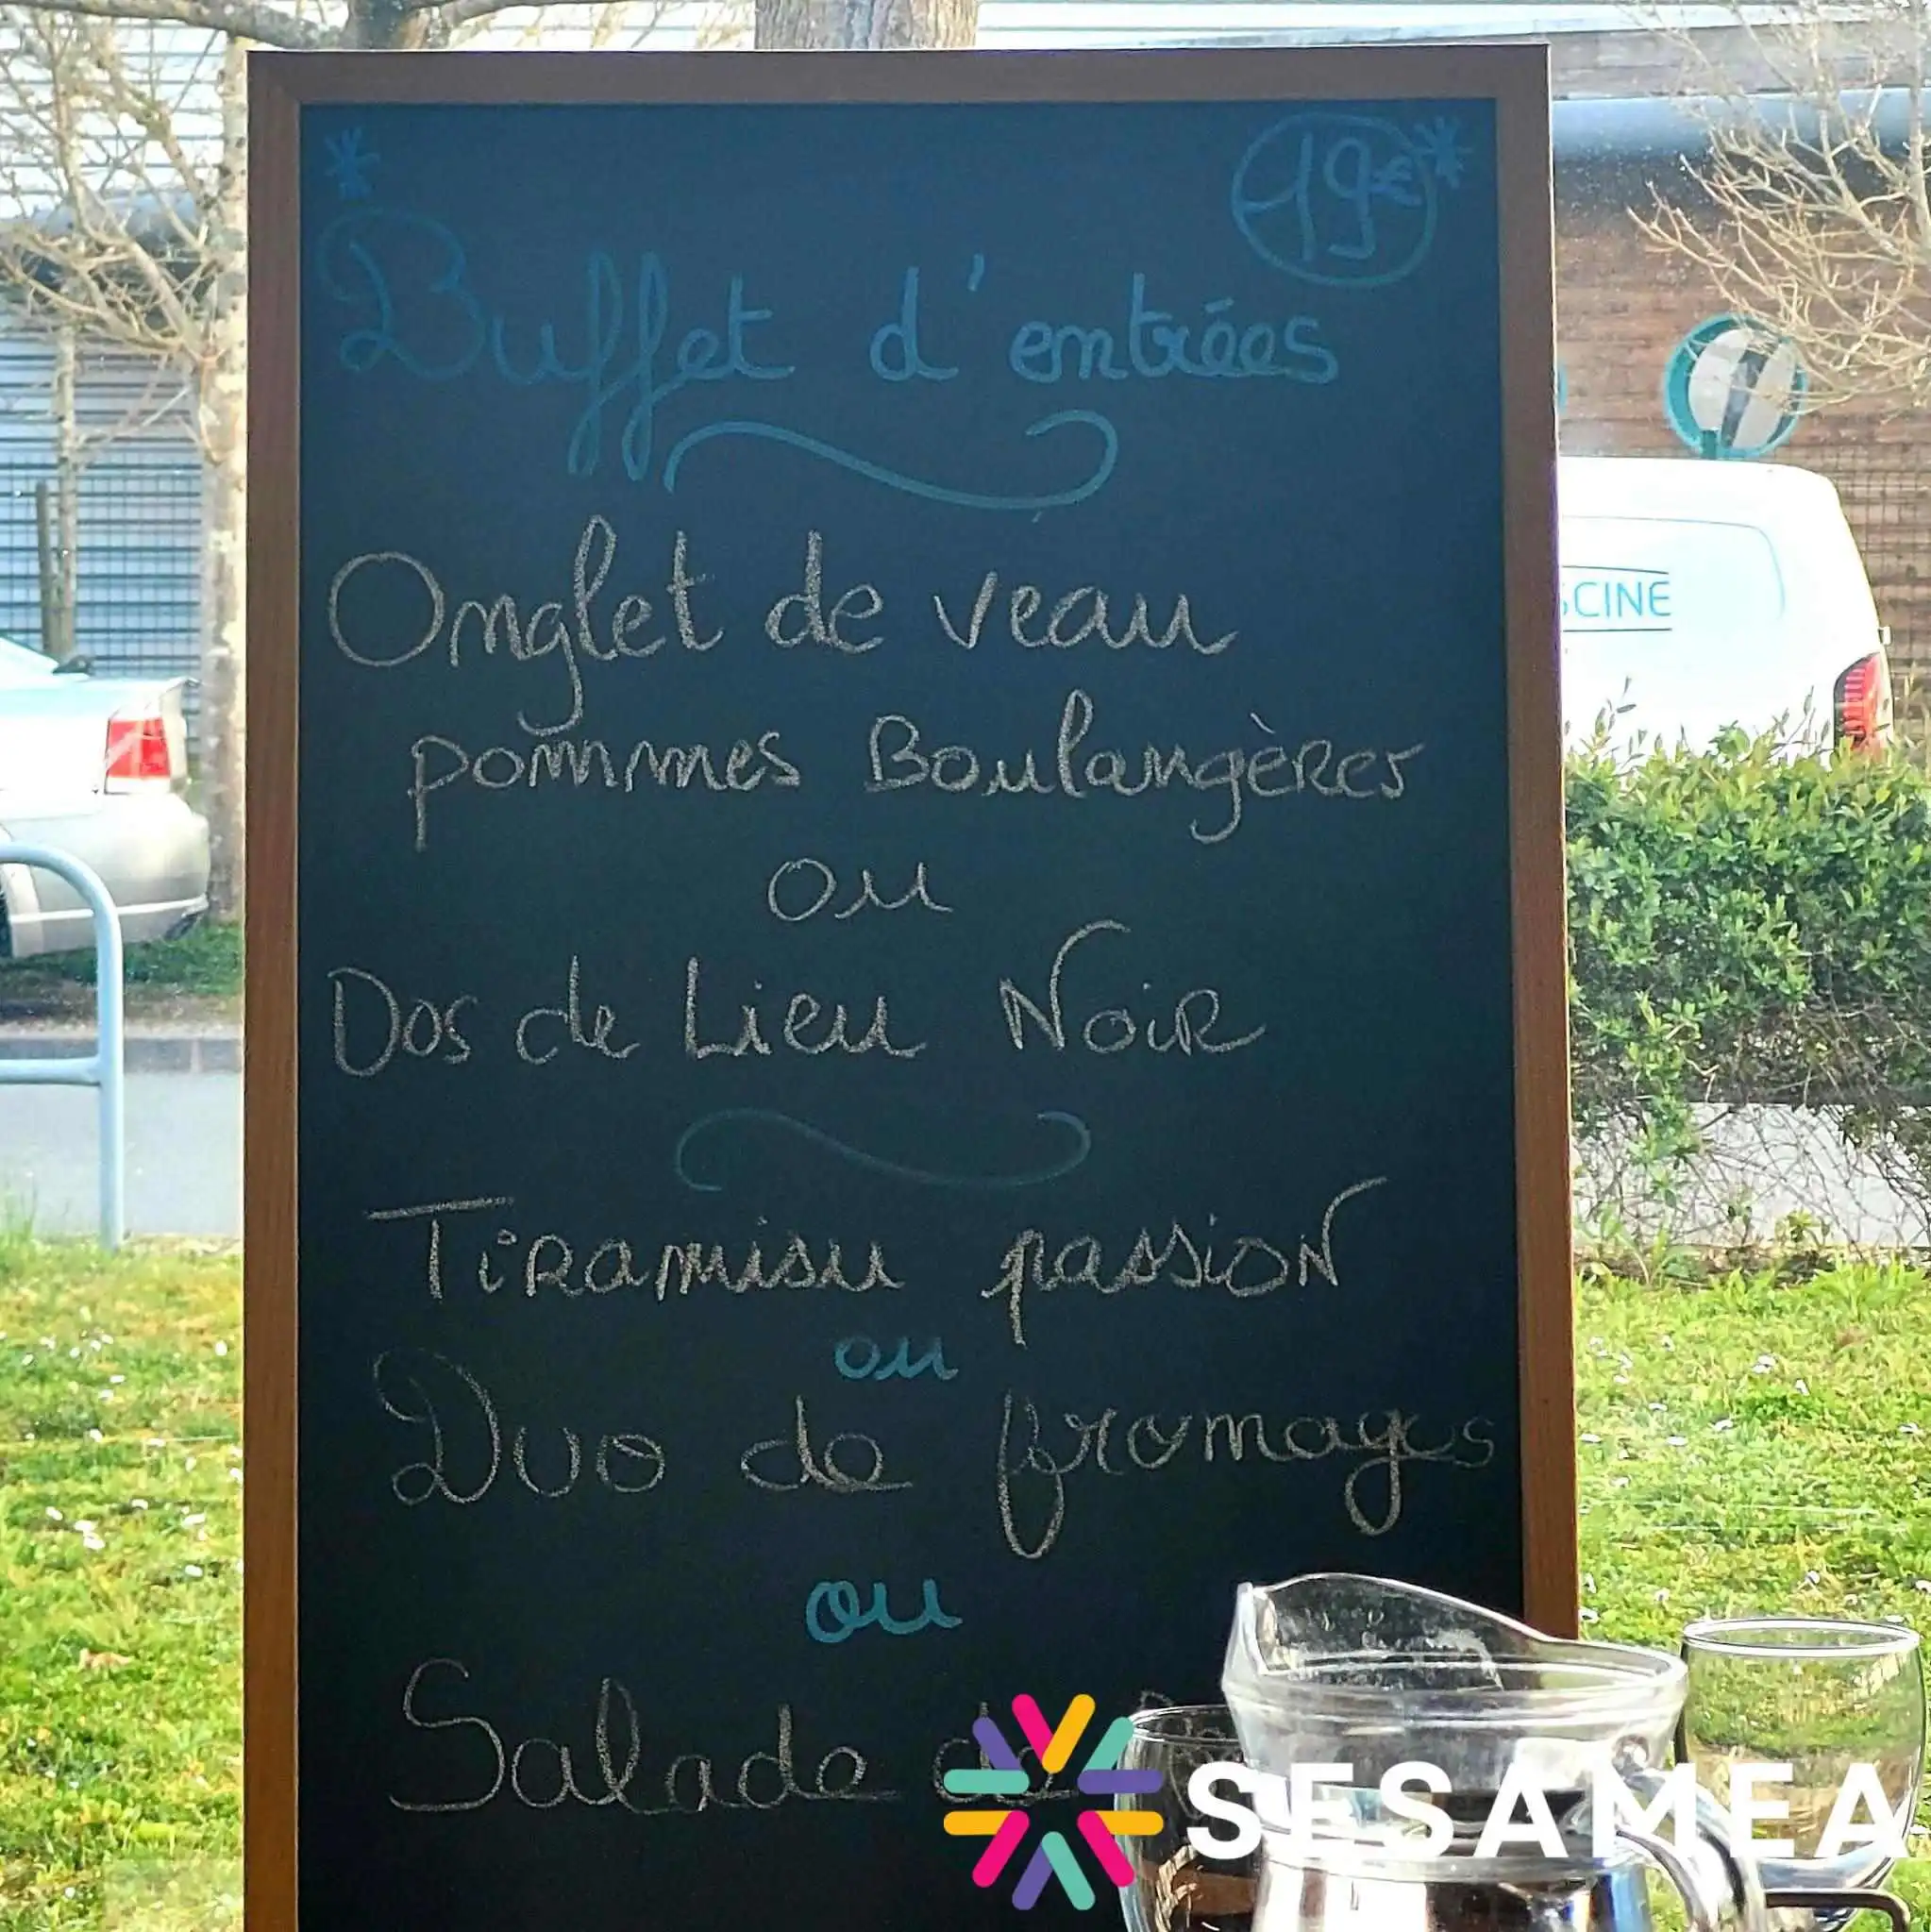 * 19€ *
Buffet d'entrées
Onglet de veau
pommes Boulangères
ou
Dos de Lieu Noir
Tiramisu passion
ou
Duo de fromages
ou
Salade de
SESAMEA
CINE